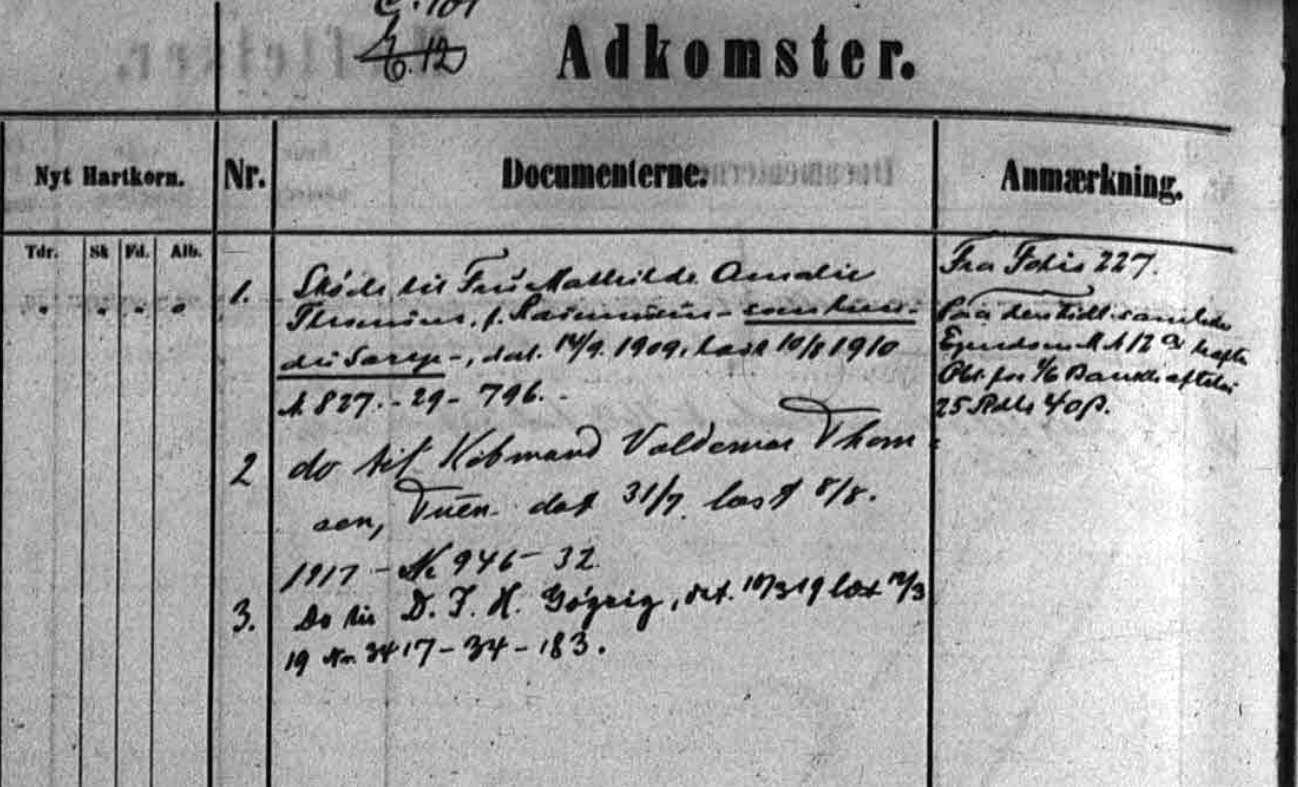 C. 101
E. 12
Adkomster.
Nyt Hartkorn. Nr. Documenterne. Anmærkning.
Tdr. Sk Fd. Alb.
" " " "
1. Skøde til Fru Mathilde Amalie
Thomsen, f. Rasmussen
dat. 14/9. 1909, læst 10/8 1910
N. 827. - 29 - 796. -
2 do til Købmand Valdemar Thom
sen, Tuën dat 31/7 læst 8/8.
1917 - № 946 - 32.
3. Do til D. J. H. dat. 10/3 19 læst 12/3
19 Nr. 3417 - 34 - 183.
Fra Folio 227.
Paa den tidl. samlede
Ejendom M N 12 a hafte
Obl. for 1/6 Bankhæftelse
25 Rdlr 40 β.